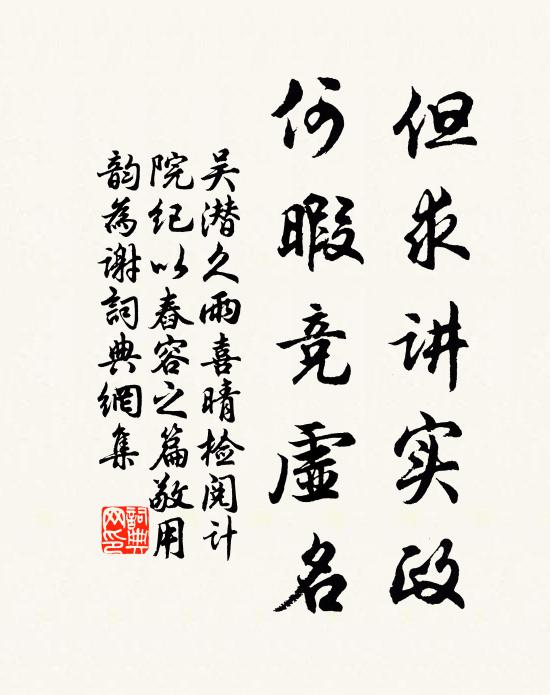 但求讲实政
何暇竞虚名
吴潜久雨喜晴检阅计
院纪以春容之篇敬用
韵为谢词典网集
词典
网印